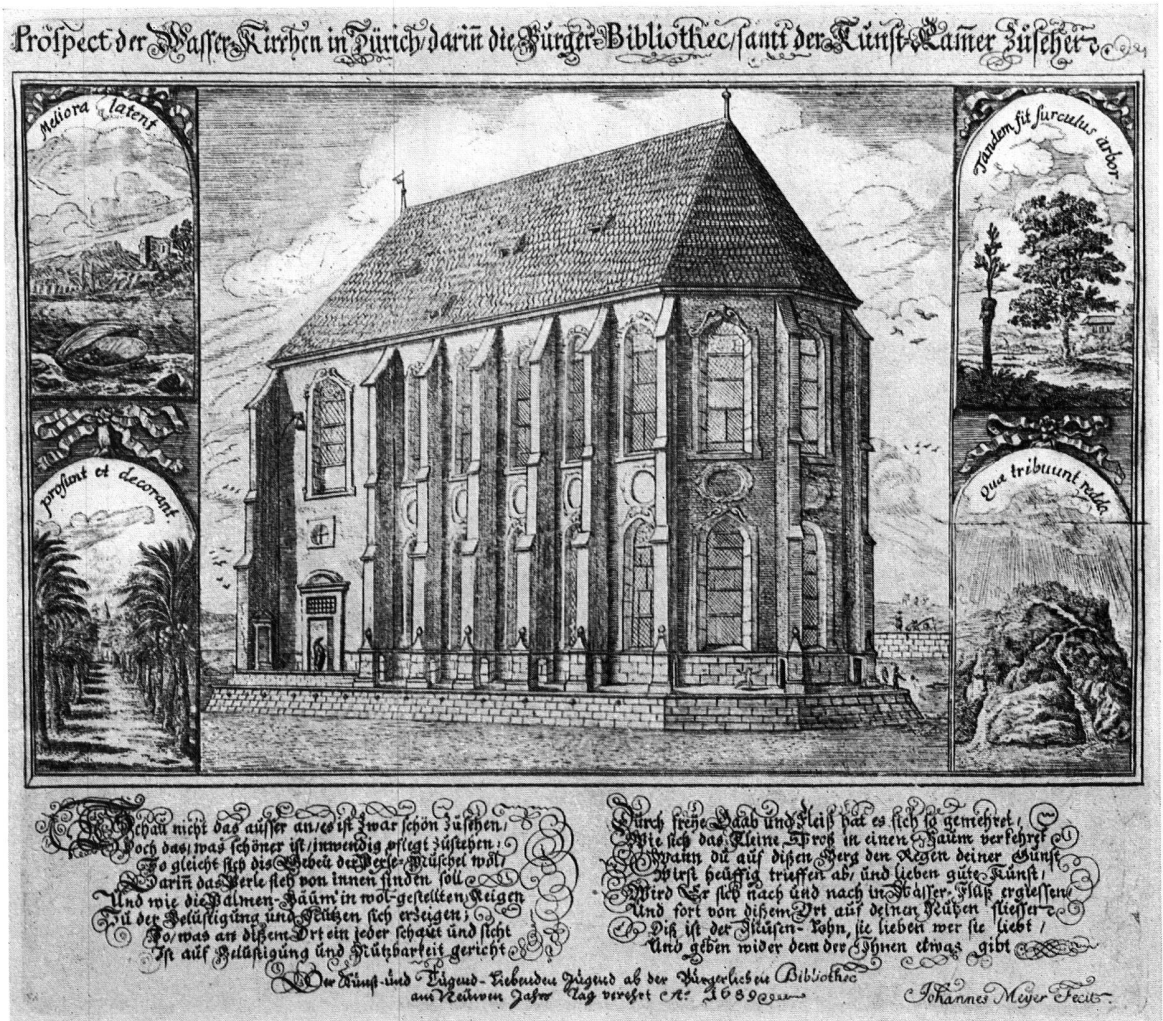 Prospect der Wasser-Kirchen in Zürich, darin̄ die Bürger-Bibliothec, samt der Kunst-Kam̄er Zusehen.
Meliora latent
Tandem fit surculus arbor.
prosunt et decorant
Quæ tribuunt reddo.
Schau nicht das äusser an, es ist zwar schön zusehen,
Doch das, was schöner ist, inwendig pflegt zustehen,
So gleicht sich dis Gebeü der Perle-Muschel wol,
Darin̄ das Perle sich von innen finden soll
Und wie die Palmen-Bäum in wol-gestellten Reigen
Zu der Belustigung und Nutzen sich erzeigen;
So, was an disem Ort ein jeder schaut und sicht
Ist auf Belustigung und Nutzbarkeit gericht
Durch freÿe Gaab und Fleiß hat es sich so gemehret,
Wie sich das kleine Sproß in einen Baum verkehret
Wann du auf disen Berg den Regen deiner Gunst
Wirst heüffig trieffen ab, und lieben gute Kunst,
Wird Er sich nach und nach in Wasser-Fluß ergiessen,
Und fort von disem Ort auf deinen Nutzen fliessen
Diß ist der Musen-Lohn, sie lieben wer sie liebt,
Und geben wider dem der Ihnen etwas gibt
Der Kunst-und Tugend-Liebenden Jugend ab der Bürgerlichen Bibliothec
am Neuwen Jahrs Tag verehrt Aº. 1689
Johannes Meyer Fecit.